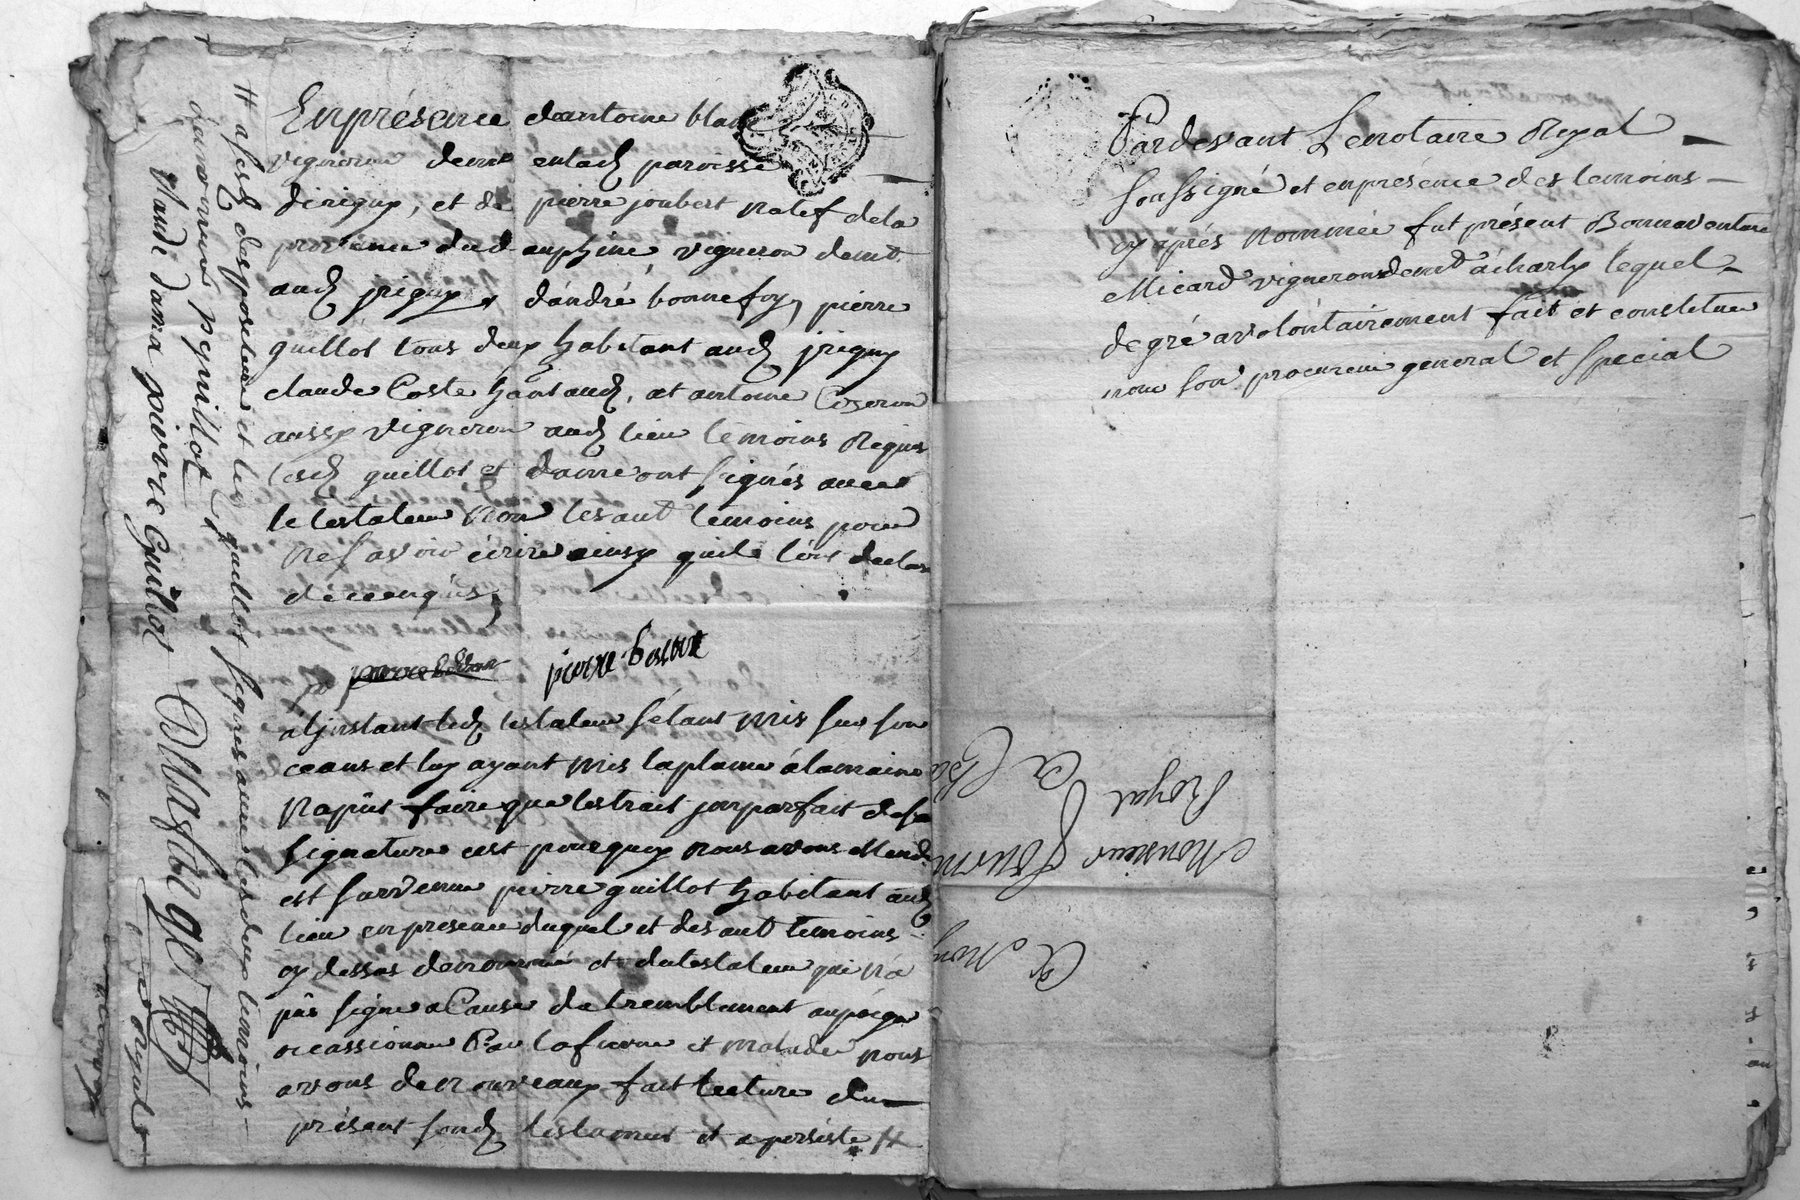 Enpresence dantoine blanc
vigneron demt enlad paroisse
dirigny, et de pierre joubert natif dela
province dudauphiné vigneron demt
aud jrigny, dandré bonnefoy, pierre
guillot tous deux habitant aud jrigny
claude Coste habt aud, et antoine
aussy vigneron aud lieu temoins Requis
lesd guillot et damé ont signés avec
le testateur Non lesaut temoins pour
Ne savoir écrire ainsy quils lont declaré
dece enquis,
pierre
aljnstant led testateur sétant mis sur son
ceans et luy ayant mis laplume álamaine
Napût faire que lestrait jmparfait desa
signature cest pourquoy nous avons Mandé
est survenu pierre guillot habitant aud
lieu enpresence duquel et desaut temoins
cy dessus denommé et dutestateur qui na
pûs signe a Cause du tremblement aupoigné
occassionne Par lafievre et maladie nous
avons denouveaux fait lecture du
présent sond testament et a persisté #
# a sesd dispositeur et led guillot signés avec lesdeux temoins
denommé p guillot
Claude dama pierre Guillot
Pardevant Lenotaire Royal
soussigné et enprésence des temoins
cy aprés nommée fut présent Bonnaventure
Micard vigneron demt ácharly lequel
degré avolontairement fait et constitue
pour son procureur general et special
A Mon
Monsieur
Royal A